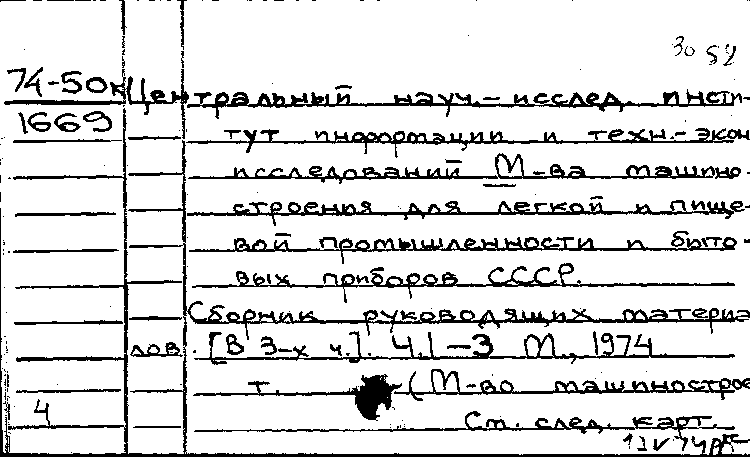 30 52
74-50к Центральный науч.-исслед. инсти-
1669 тут информации и техн.-экон
исследований М-ва машино-
строения для легкой и пище-
вой промышленности и быто-
вых приборов СССР.
Сборник руководящих материа
лов. [В 3-х ч.]. Ч.1-3 М., 1974
т. (М-во машинострое
4 См. след. карт.